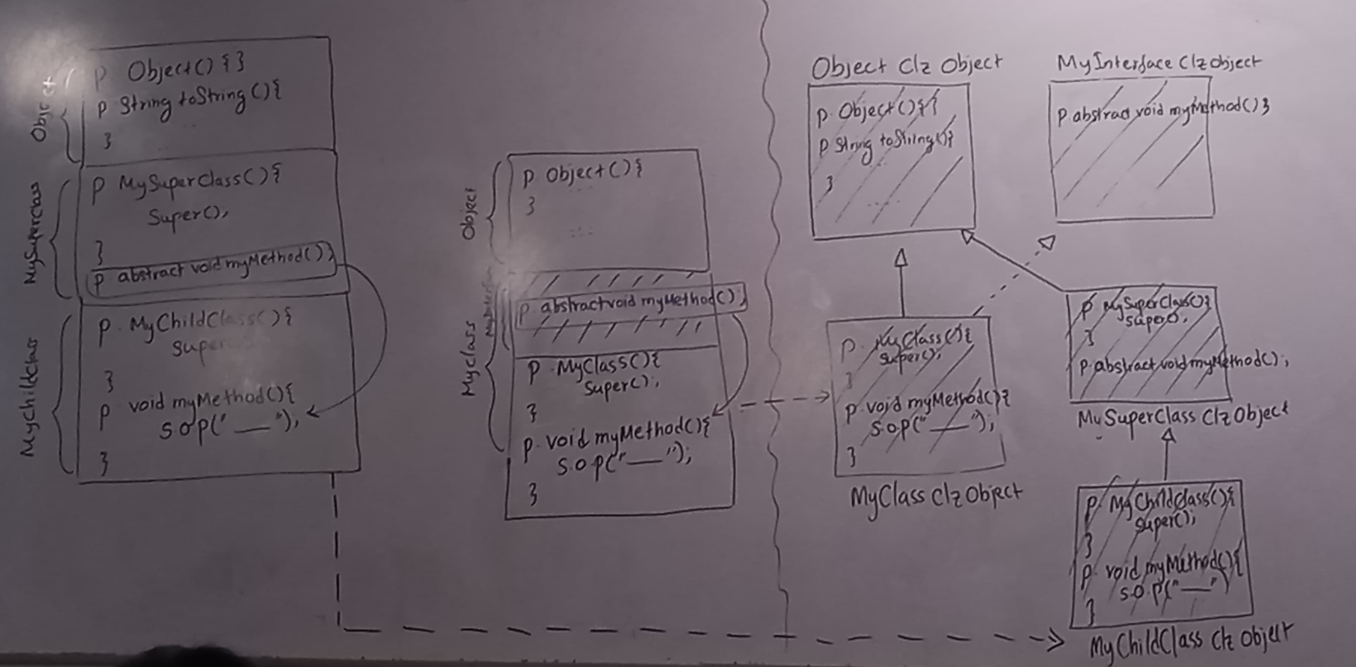 Object
p Object() { }
p String toString() {
}
MySuperclass
p MySuperclass() {
Super();
}
p abstract void myMethod();
MyChildClass
p MyChildClass() {
super
}
p void myMethod() {
s.o.p("—");
}
Object
p Object() {
}
...
Myclass
p abstract void myMethod();
p MyClass() {
super();
}
p void myMethod() {
s.o.p("—");
}
Object Clz Object
p Object() {}
p String toString() {
}
....
MyInterface Clz object
p abstract void myMethod() }
p MyClass() {
super();
}
p void myMethod() {
s.o.p("—");
}
MyClass Clz Object
p MySuperClass() {
super();
}
p abstract void myMethod();
MySuperClass Clz Object
p MyChildClass() {
super();
}
p void myMethod() {
s.o.p("—")
}
MyChildClass Clz Object